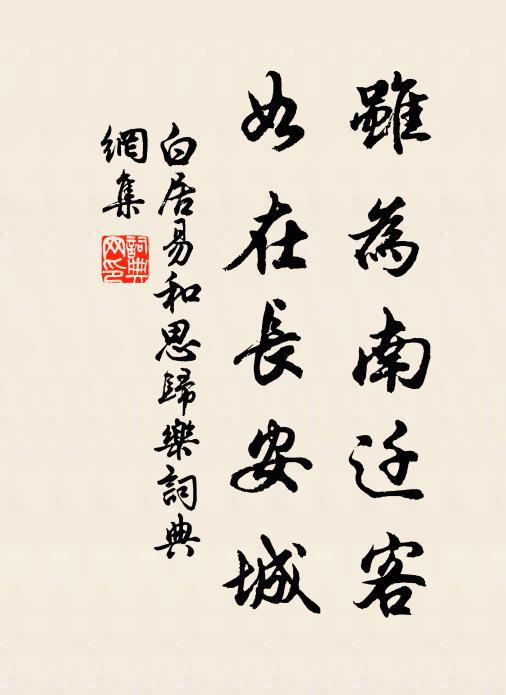 雖為南迁客
如在長安城
白居易和思歸樂詞典
網集
詞典
网印